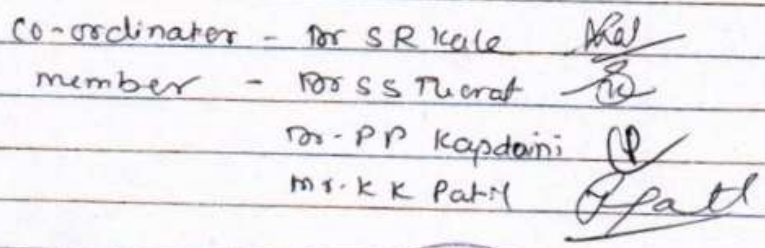 Co-ordinator - Dr S R Kale
member - Dr S S Thorat
Dr. P P Kapdaini
Mr. K K Patil